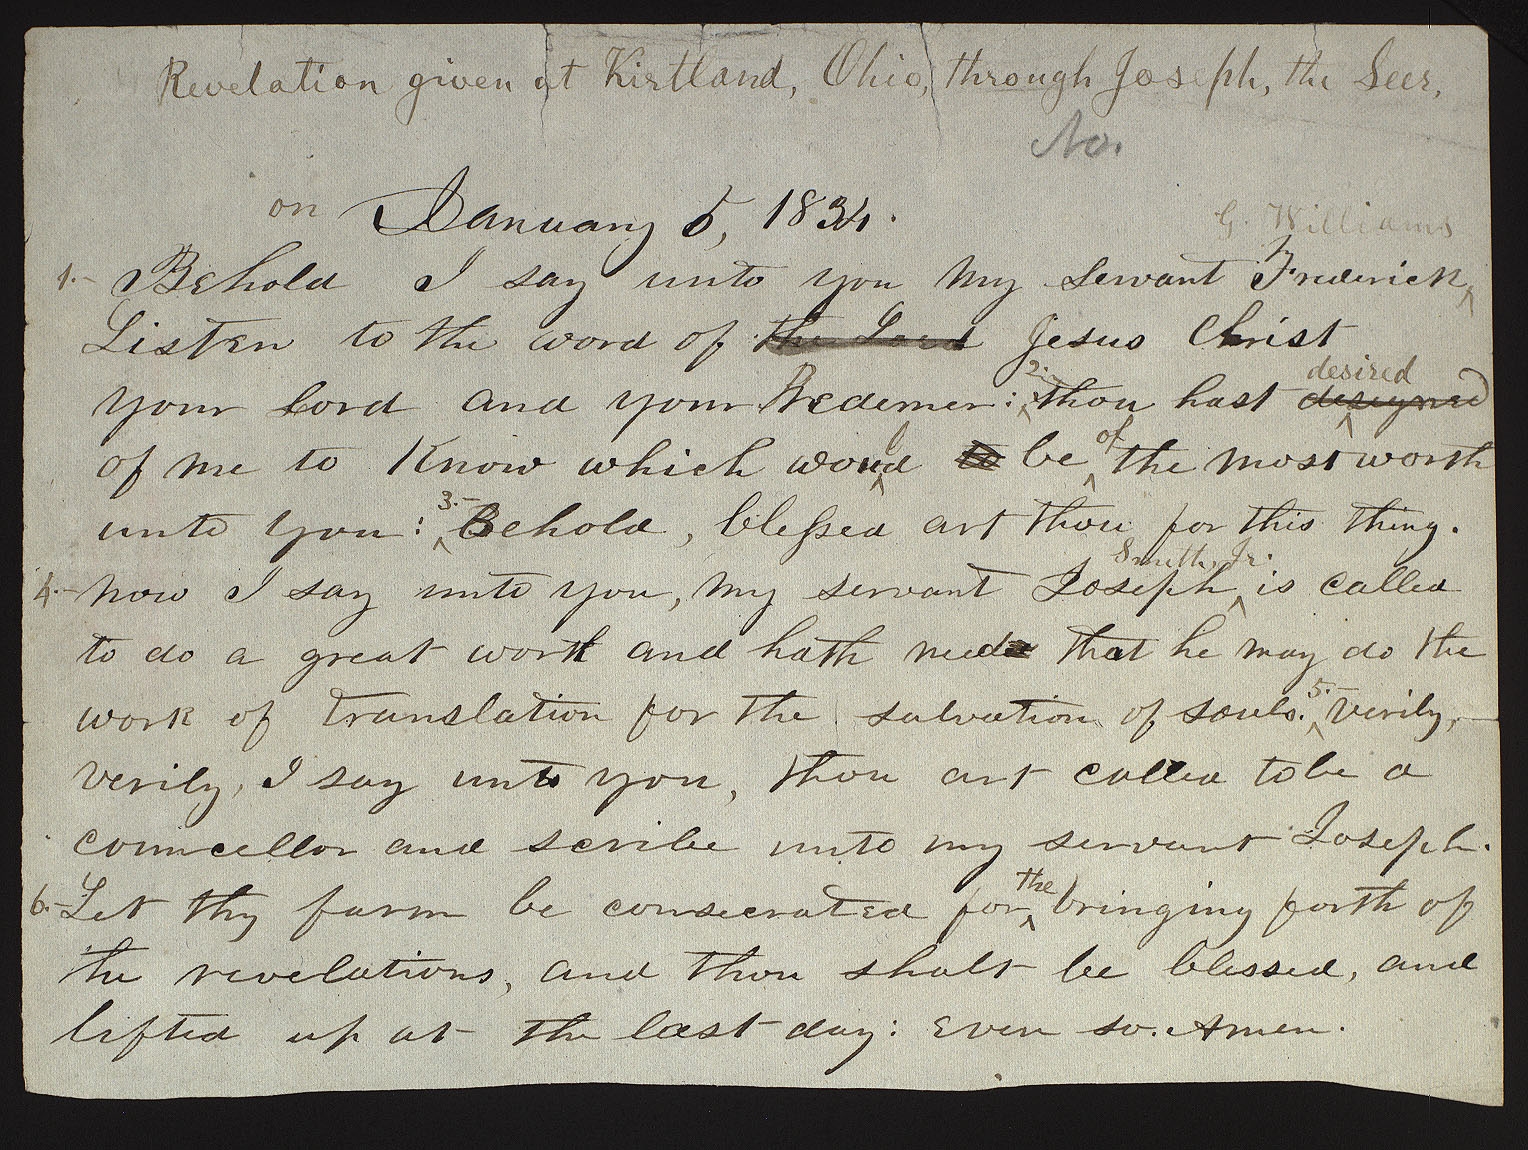 Revelation given at Kirtland, Ohio, through Joseph, the Seer,
No.
on January 5, 1834.
G. Williams
1.- Behold I say unto you my servant Frederick
Listen to the word of the Lord Jesus Christ
desired
your Lord and your Redeemer: 2.- thou hast designed
of me to Know which would to be of the most worth
unto you: 3.- Behold, blessed art thou for this thing.
Smith, Jr.
4.- now I say unto you, my servant Joseph is called
to do a great work and hath need that he may do the
work of translation for the salvation of souls. 5.- Verily,
Verily, I say unto you, thou art called to be a
councellor and scribe unto my servant Joseph.
the
6.- Let thy farm be consecrated for bringing forth of
the revelations, and thou shalt be blessed, and
lifted up at the last day: even so. Amen.